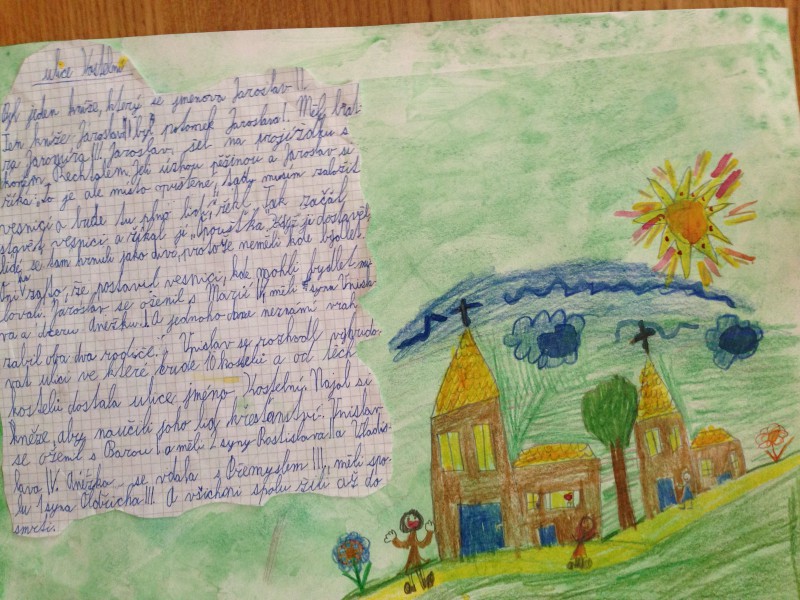 ulice Kostelní
Byl jeden kníže, který se jmenova Jaroslav II.
Ten kníže Jaroslav II byl potomek Jaroslava I. Měl brat-
ra Jaromíra III. Jaroslav jel na projížďku s
koněm Rechtalem. Jeli úzkou pěšinou a Jaroslav si
říká: „To je ale místo opuštěné, tady musím založit
vesnici a bude tu plno lidí“, řekl. Tak začal
stavět vesnici a říkal jí „Opouštka“. Když ji dostavěl,
lidi se tam hrnuli jako diví, protože neměli kde bydlet.
Oni ho za to, že postavil vesnici, kde mohli bydlet mi-
lovali. Jaroslav se oženil s Marií IV. měli syna Vnisla-
va a dceru Anežku I. A jednoho dne neznámí vrah
zabil oba dva rodiče. Vnislav se rozhodl vybudo-
vat ulici ve které bude 10 kostelů a od těch
kostelů dostala ulice jméno Kostelní. Najal si
kněze, aby naučili jeho lid křesťanství. Vnislav
se oženil s Barou I a měli 2 syny Rostislava II a Vladis-
lava IV. Anežka se vdala s Přemyslem III, měli spo-
lu 1 syna Oldřicha III. A všichni spolu žili až do
smrti.